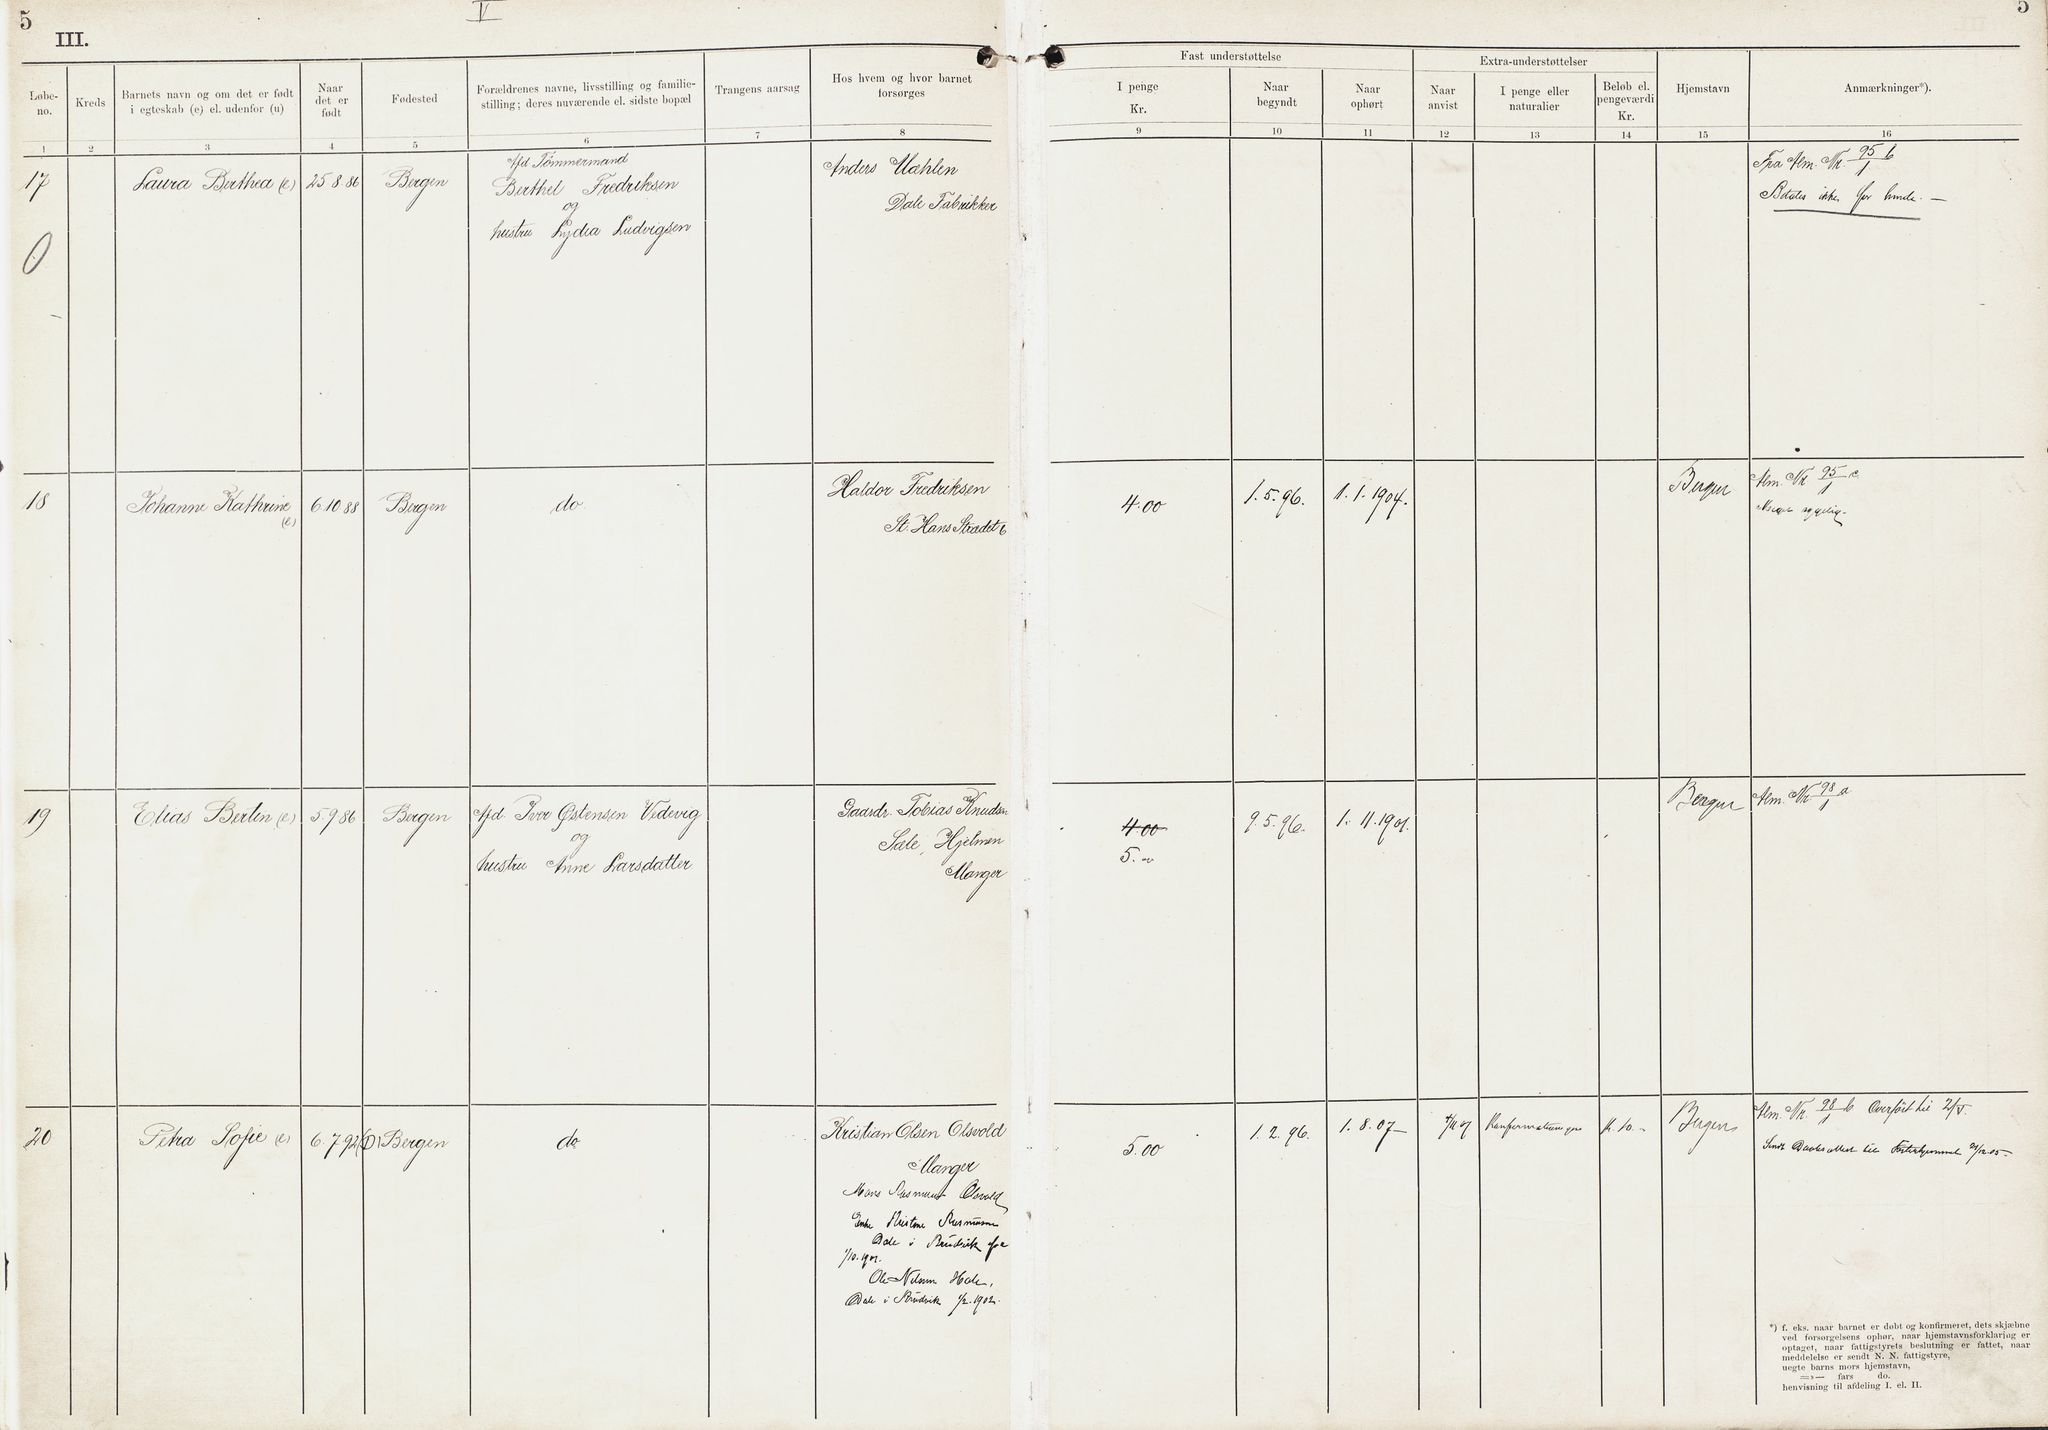 5
V
5
III.
Løbe-
no.
Kreds
Barnets navn og om det er født
i egteskab (e) el. udenfor (u)
Naar
det er
født
Fødested
Forældrenes navne, livsstilling og familie-
stilling; deres nuværende el. sidste bopæl
Trangens aarsag
Hos hvem og hvor barnet
forsørges
Fast understøttelse
I penge
Kr.
Naar
begyndt
Naar
ophørt
Extra-understøttelser
Naar
anvist
I penge eller
naturalier
Beløb el.
pengeværdi
Kr.
Hjemstavn
Anmærkninger*).
1 2 3 4 5 6 7 8 9 10 11 12 13 14 15 16
17
Laura Berthea (e)
25 8 86
Bergen
Afd Tømmermand
Berthel Fredriksen
og
hustru Lydia Ludvigsen
Anders Mæhlen
Dale Fabrikker
Fra Alm. Nr. 95/1 b
Betales ikke for hende. —
0
18
Johanne Kathrine
(e)
6 10 88
Bergen
do
Haldor Fredriksen
St. Hans Strædet 6
4.00
1. 5. 96.
1. 1. 1904.
Bergen
Alm. Nr 95/1 c
19
Elias Bertin (e)
5. 9 86
Bergen
Afd. Iver Østensen Vedevig
og
hustru Anne Larsdatter
Gaardr. Tobias Knudsen
Sæle, Hjelmen
Manger
4.00
5. -
9. 5. 96.
1. 11. 1901.
Bergen
Alm. Nr 98/1 a
20
Petra Sofie (e)
6. 7 92
Bergen
do
Kristian Olsen Olsvold
Manger
Mons Rasmussen
Enke Kristine Rasmussen
Dale i Bruvik fra
1/10. 1901.
Ole Nilsen
Dale i Bruvik 1/2. 1902.
5.00
1. 2. 96.
1. 8. 07 —
Kr. 10. -
Bergen
Alm. Nr. 98/1 b Overført til 2/V.
Sendt Daabsattest til Fosterhjemmet
*) f. eks. naar barnet er døbt og konfirmeret, dets skjæbne
ved forsørgelsens ophør, naar hjemstavnsforklaring er
optaget, naar fattigstyrets beslutning er fattet, naar
meddelelse er sendt N. N. fattigstyre,
uegte barns mors hjemstavn,
—»— fars do.
henvisning til afdeling I. el. II.